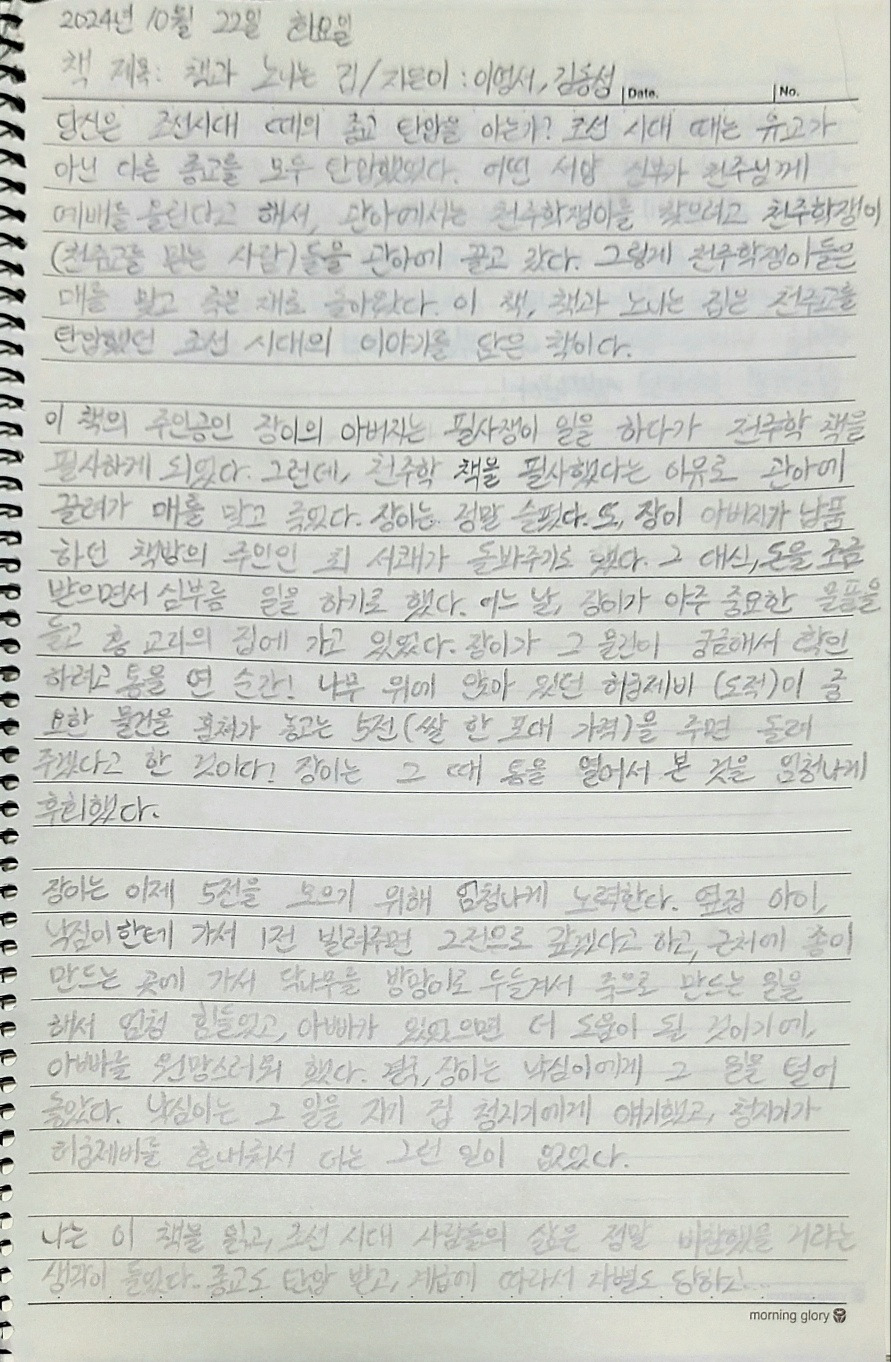 2024년 10월 22일 화요일
책 제목: 책과 노니는 집/지은이:이영서, 김동성
Date. No.
당신은 조선시대 때의 종교 탄압을 아는가? 조선 시대 때는 유교가
아닌 다른 종교를 모두 탄압했었다. 어떤 서양 신부가 천주님께
예배를 올린다고 해서, 관아에서는 천주학쟁이를 찾으려고 천주학쟁이
(천주교를 믿는 사람)들을 관아에 끌고 갔다. 그렇게 천주학쟁이들은
매를 맞고 죽은 채로 돌아왔다. 이 책, 책과 노니는 집은 천주교를
탄압했던 조선 시대의 이야기를 담은 책이다.
이 책의 주인공인 장이의 아버지는 필사쟁이 일을 하다가 천주학 책을
필사하게 되었다. 그런데, 천주학 책을 필사했다는 이유로 관아에
끌려가 매를 맞고 죽었다. 장이는 정말 슬펐다. 또, 장이 아버지가 납품
하던 책방의 주인인 최 서쾌가 돌봐주기도 했다. 그 대신, 돈을 조금
받으면서 심부름 일을 하기로 했다. 어느 날, 장이가 아주 중요한 물품을
들고 홍 교리의 집에 가고 있었다. 장이가 그 물건이 궁금해서 확인
하려고 통을 연 순간! 나무 위에 앉아 있던 허궁제비(도적)이 중
요한 물건을 훔쳐가 놓고는 5전(쌀 한 포대 가격)을 주면 돌려
주겠다고 한 것이다! 장이는 그 때 통을 열어서 본 것을 엄청나게
후회했다.
장이는 이제 5전을 모으기 위해 엄청나게 노력한다. 옆집 아이,
낙심이한테 가서 1전 빌려주면 2전으로 갚겠다고 하고, 근처에 종이
만드는 곳에 가서 닥나무를 방망이로 두들겨서 죽으로 만드는 일을
해서 엄청 힘들었고, 아빠가 있었으면 더 도움이 될 것이기에,
아빠를 원망스러워 했다. 결국, 장이는 낙심이에게 그 일을 털어
놓았다. 낙심이는 그 일을 자기 집 청지기에게 얘기했고, 청지기가
허궁제비를 혼내줘서 더는 그런 일이 없었다.
나는 이 책을 읽고, 조선 시대 사람들의 삶은 정말 비참했을 거라는
생각이 들었다. 종교도 탄압 받고, 계급에 따라서 차별도 당하고...
morning glory